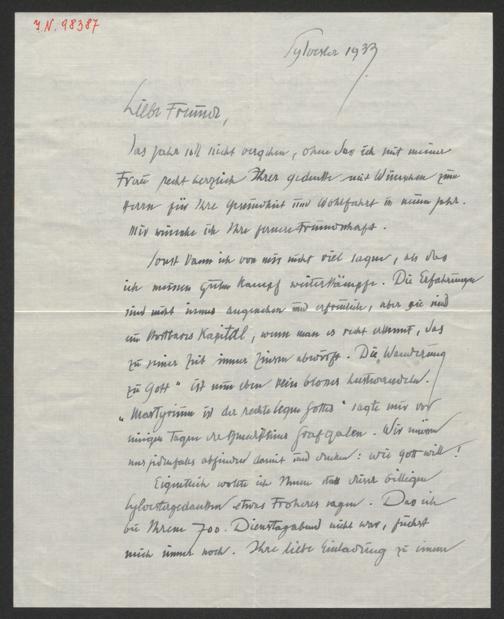 J.N. 98387
Sylvester 1933
Liebe Freunde,
Das Jahr soll nicht vergehen, ohne das ich mit meiner
Frau recht herzlich Ihrer gedenke mit Wünschen zum
Herrn für Ihre Gesundheit und Wohlfahrt in neuem Jahr.
Mir wünsche ich Ihre fernere Freundschaft.
Sonst kann ich von mir nicht viel sagen, als das
ich meinen guten Kampf weiterkämpfe. Die Erfahrungen
sind nicht immer angenehm und erfreulich, aber sie sind
ein kostbares Kapital, wenn man es recht erkennt, das
zu seiner Zeit immer Zinsen abwirft. Die „Wanderung
zu Gott" ist nun eben kein bloses Lustwandeln.
„Martyrium ist der rechte Segen Gottes" sagte mir vor
einigen Tagen Graf Galen. Wir müssen
uns jedenfalls abfinden damit und denken: wie Gott will!
Eigentlich wollte ich Ihnen statt dieser billigen
Sylvestergedanken etwas Froheres sagen. Das ich
bei Ihrem 700. Dienstagabend nicht war,
mich immer noch. Ihre liebe Einladung zu einem